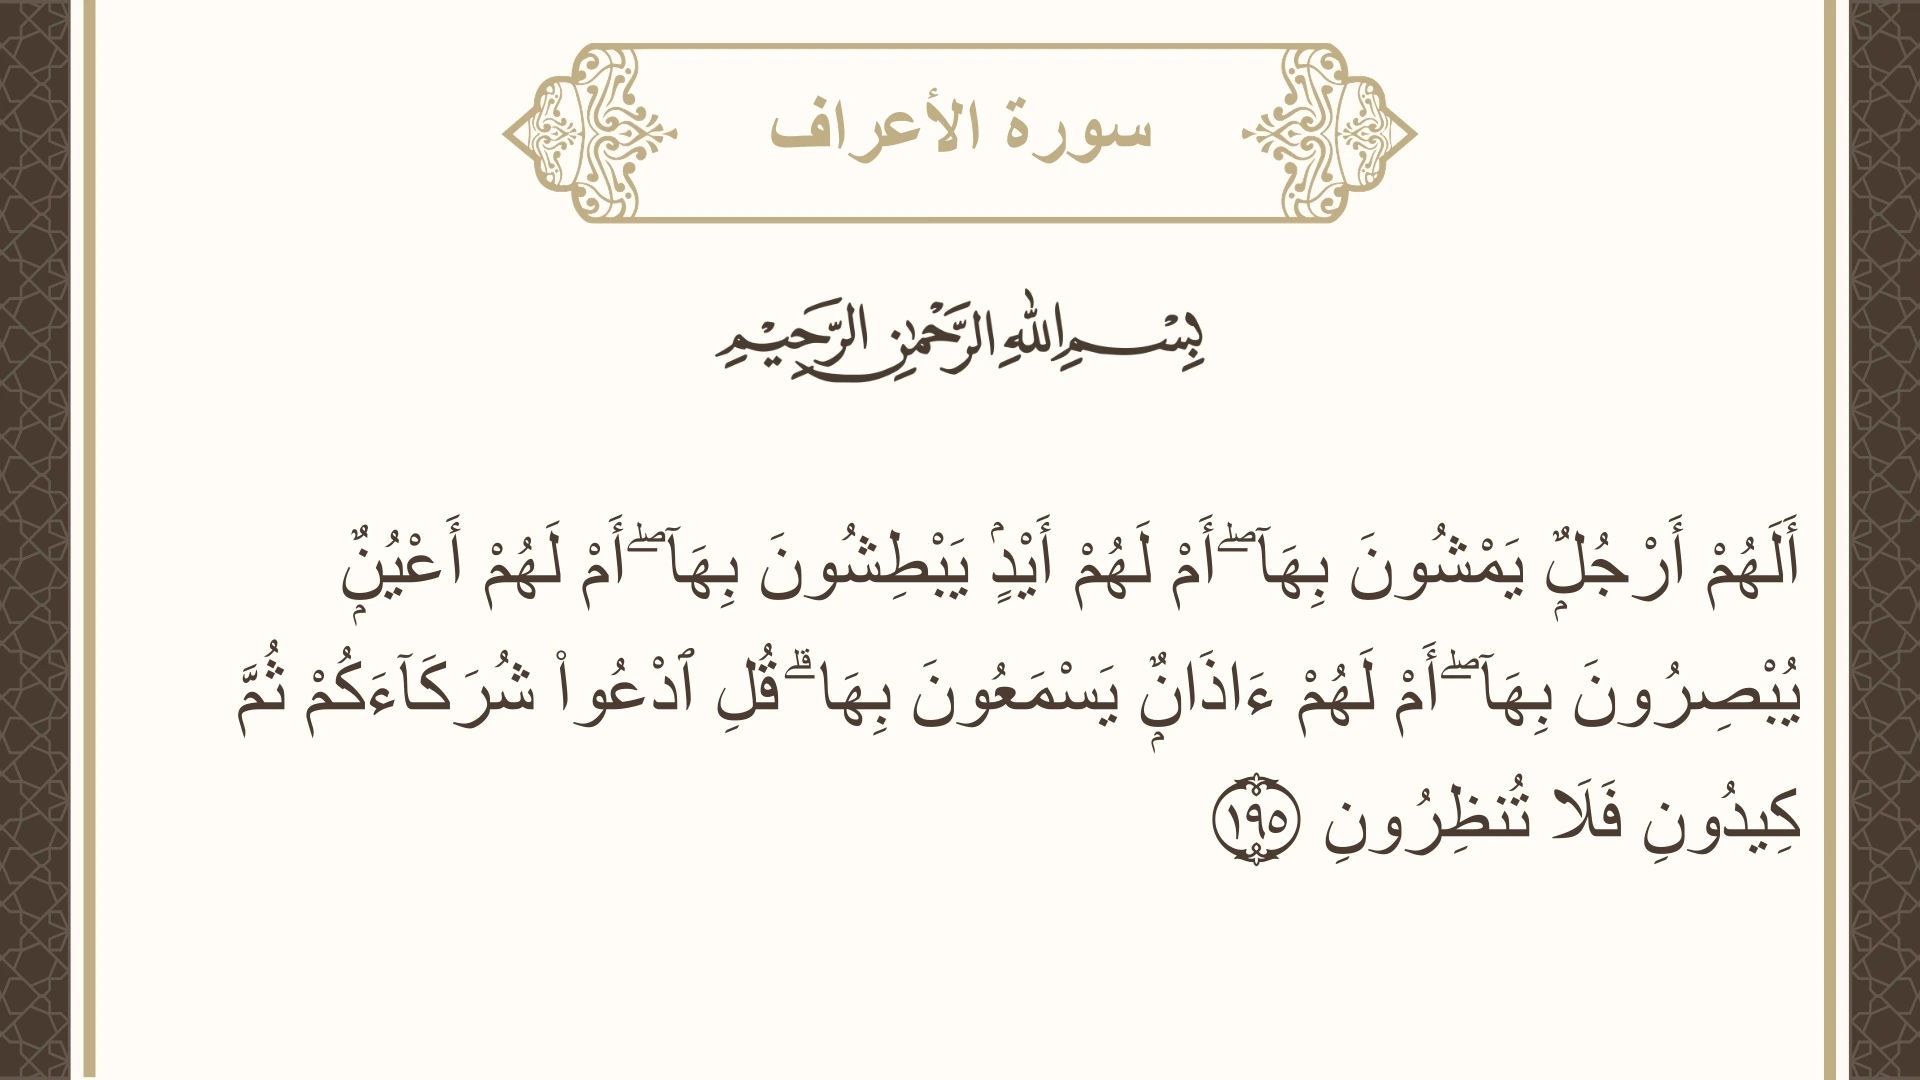 سورة الأعراف
بِسْمِ اللهِ الرَّحْمٰنِ الرَّحِيْمِ
أَلَهُمْ أَرْجُلٌۭ يَمْشُونَ بِهَآ ۖ أَمْ لَهُمْ أَيْدٍۢ يَبْطِشُونَ بِهَآ ۖ أَمْ لَهُمْ أَعْيُنٌۭ
يُبْصِرُونَ بِهَآ ۖ أَمْ لَهُمْ ءَاذَانٌۭ يَسْمَعُونَ بِهَا ۗ قُلِ ٱدْعُوا۟ شُرَكَآءَكُمْ ثُمَّ
كِيدُونِ فَلَا تُنظِرُونِ ١٩٥